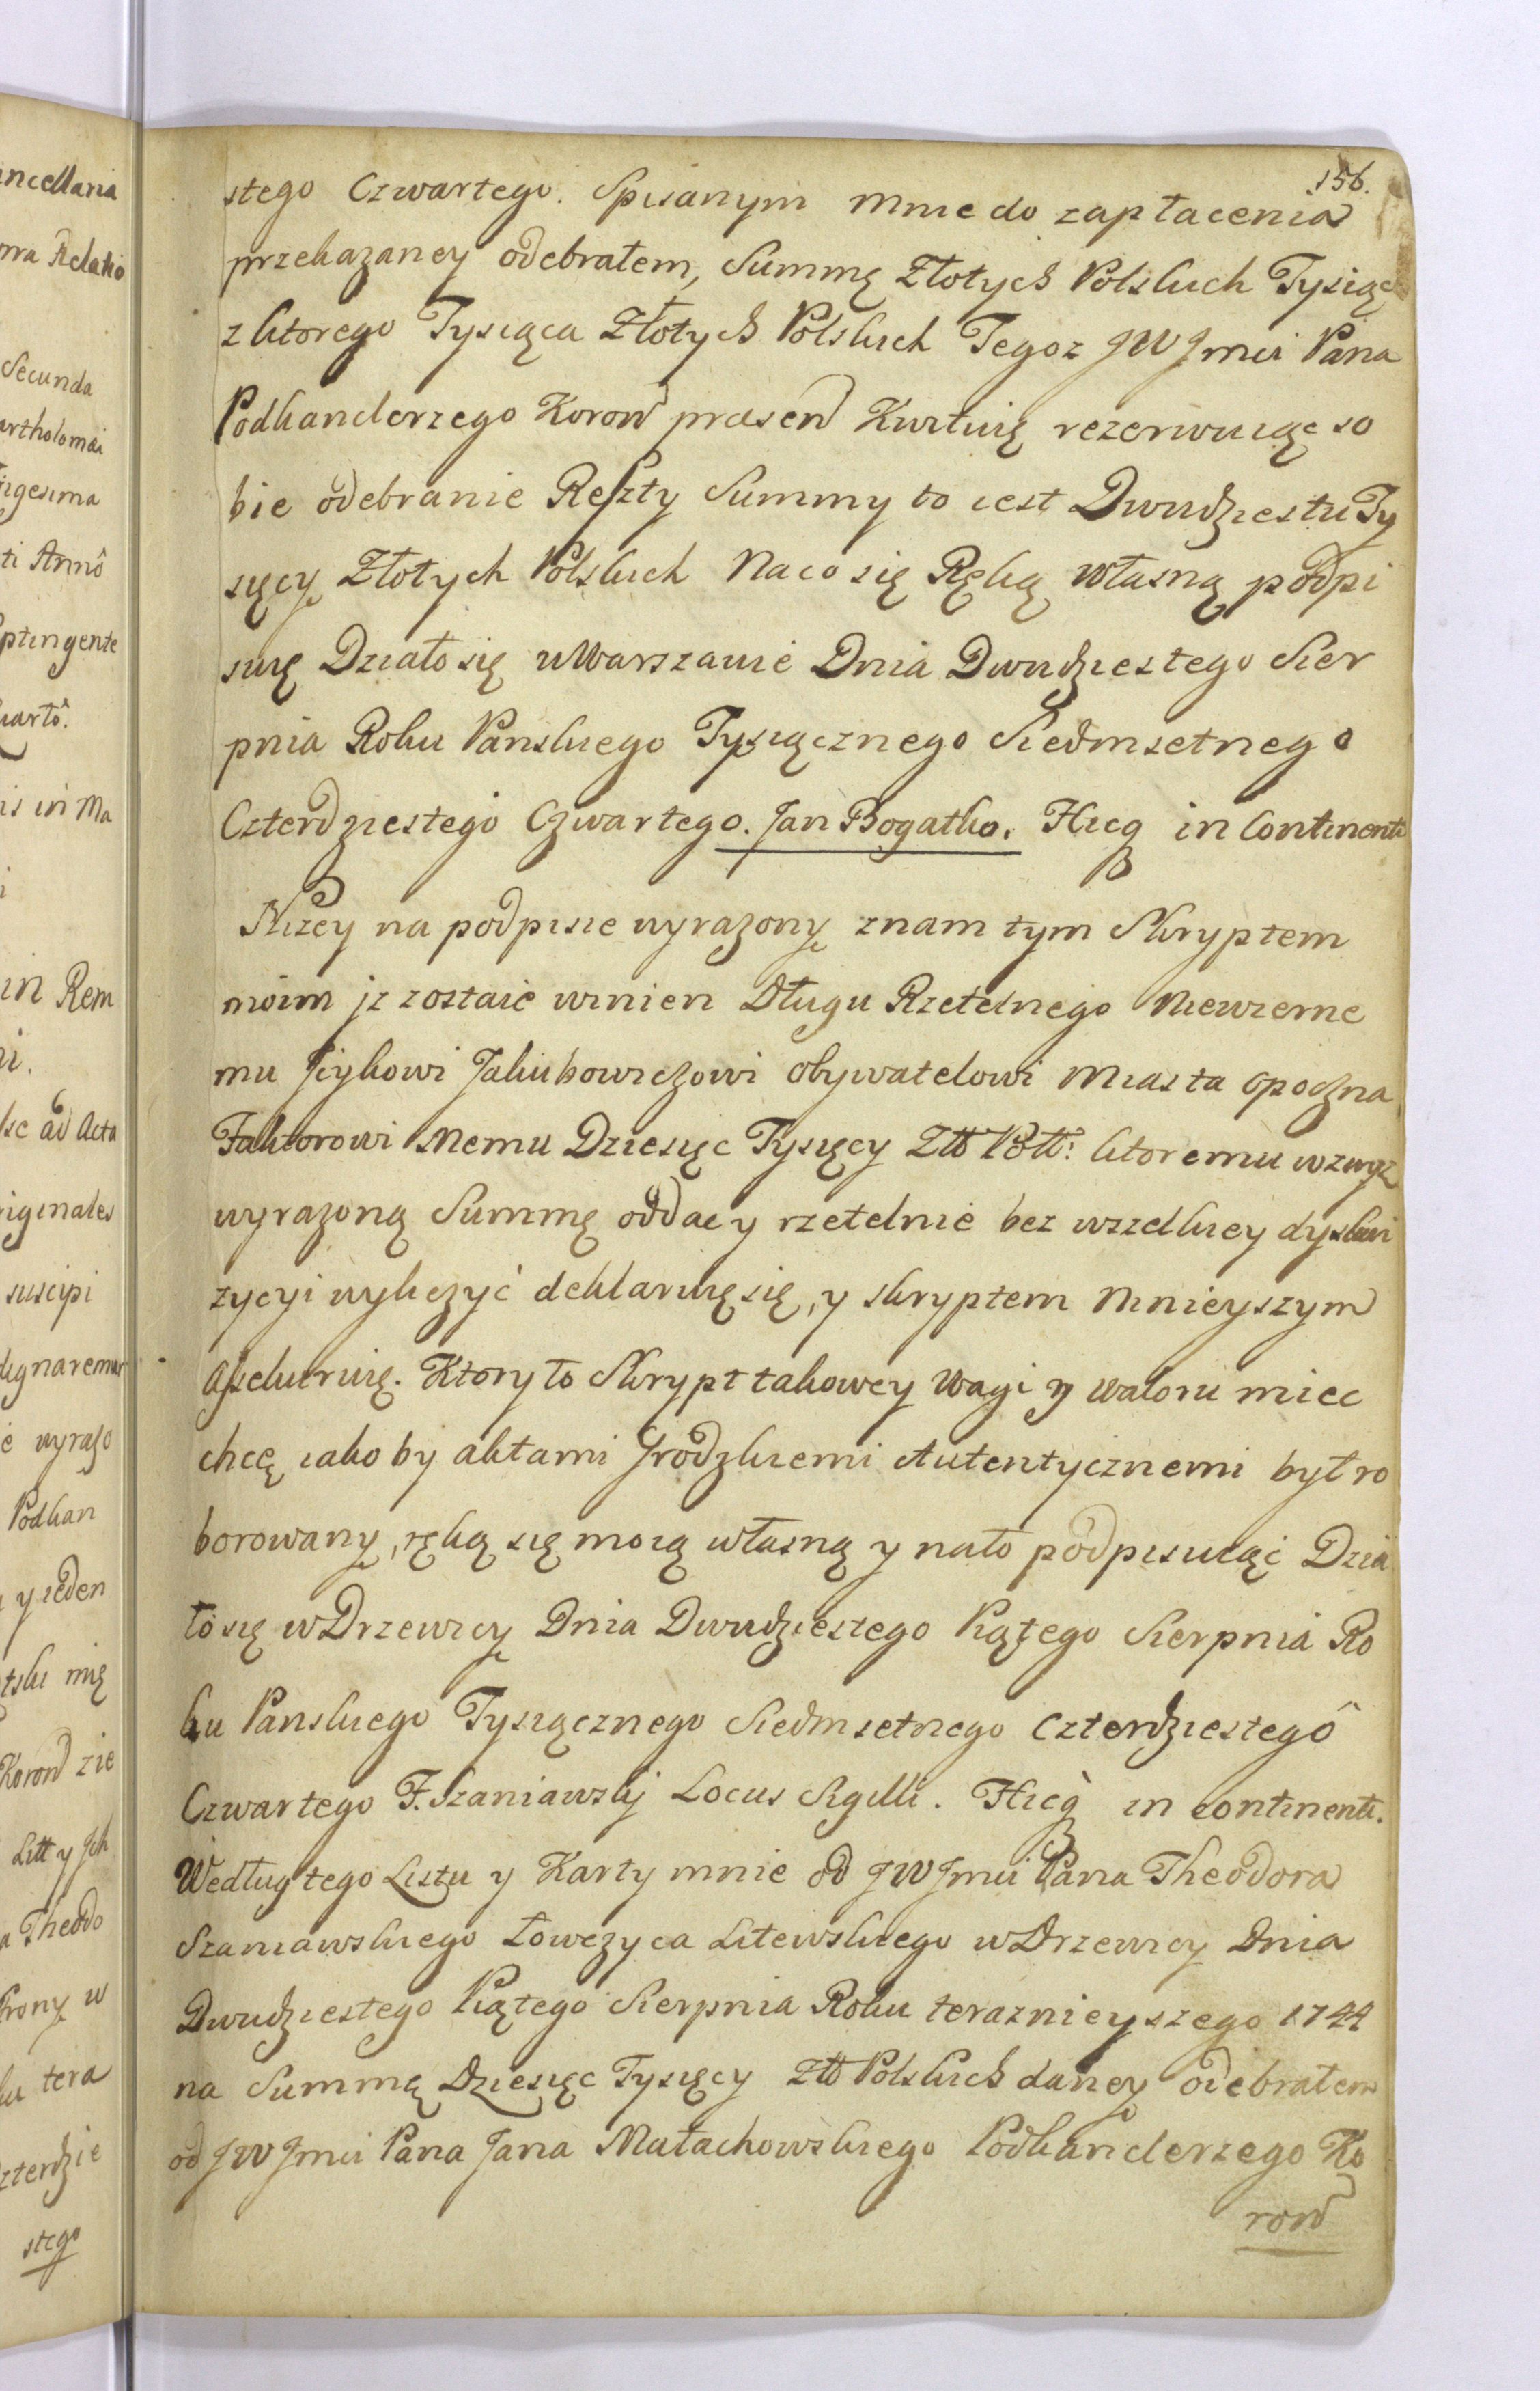 156.
stego Czwartego. Spisanym mnie do zapłacenia
przekazaney odebrałem, Summę Złotych Polskich Tysiąc
z ktorego Tysiąca Złotych Polskich Tegoz JW Jmci Pana
Podkanclerzego Koron præsen Kwituię rezerwuiąc so
bie odebranie Reszty Summy to iest Dwudziestu Ty
sięcy Złotych Polskich Na co się Ręką własną podpi
suię Działo się w Warszawie Dnia Dwudziestego Sier
pnia Roku Panskiego Tysiącznego Siedmsetnego
Czterdziestego Czwartego. Jan Bogatko. Hicq in Continenti
Niżey na podpisie wyrazony znam tym Skryptem
moim jz zostaie winien Długu Rzetelnego Niewierne
mu Jcykowi Jakubowiczowi obywatelowi Miasta Opoczna
Faktorowi Memu Dziesięc Tysięcy Złł Pollł: ktoremu wzwyz
wyrazoną Summę oddac y rzetelnie bez wszelkiey dyskwi
zycyi wyliczyć deklaruię się, y skryptem Mnieyszym
assekuruię. Ktory to Skrypt takowey Wagi y waloru miec
chcę iako by aktami Grodzkiemi Autentycznemi był ro
borowany, ręką się moią własną y na to podpisuiąc Dzia
ło się w Drzewicy Dnia Dwudziestego Piątego Sierpnia Ro
ku Panskiego Tysiącznego Siedmsetnego Czterdziestego
Czwartego F. Szaniawskj Locus Sigilli. Hicq in continenti.
Wedługtego Listu y Karty mnie od JW Jmci Pana Theodora
Szaniawskiego Łowczyca Litewskiego w Drzewicy Dnia
Dwudziestego Piątego Sierpnia Roku teraznieyszego 1744
na Summę Dziesięc Tysięcy Złł Polskich daney odebrałem
od JW Jmci Pana Jana Małachowskiego Podkanclerzego Ko
ron